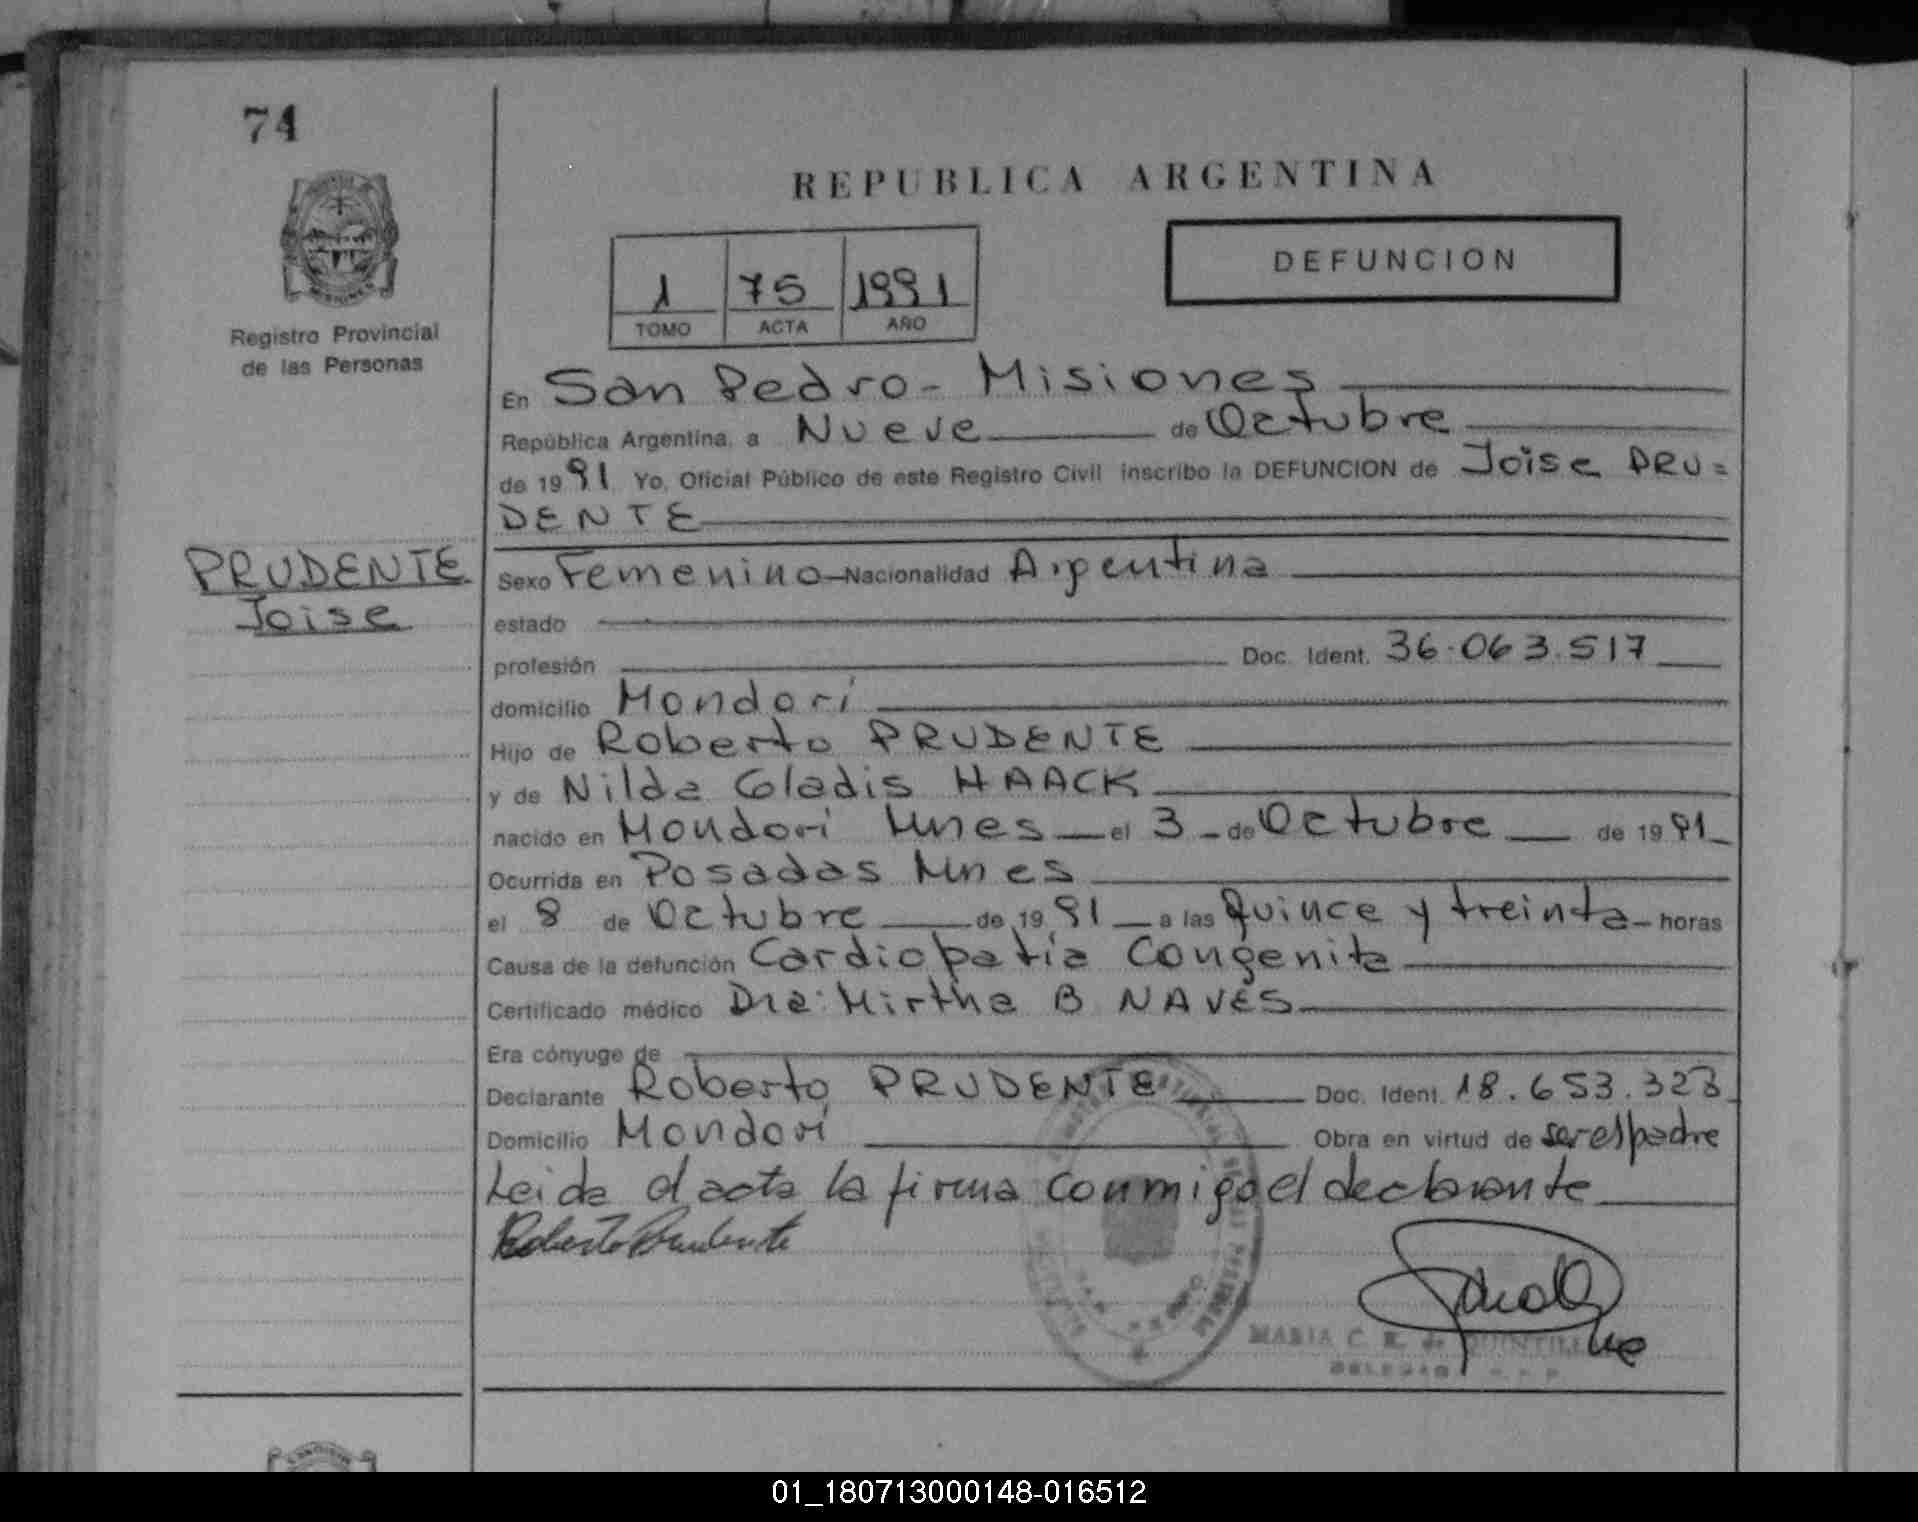 74
REPUBLICA ARGENTINA
DEFUNCION
1 75 1991
TOMO ACTA AÑO
MISIONES
Registro Provincial
de las Personas
En San Pedro - Misiones
República Argentina, a Nueve de Octubre
de 1991 Yo, Oficial Público de este Registro Civil inscribo la DEFUNCION de Joise PRU=
DENTE
PRUDENTE
Joise
Sexo Femenino Nacionalidad Argentina
estado
profesión Doc. Ident. 36.063.517
domicilio Mondorí
Hijo de Roberto PRUDENTE
y de Nilda Gladis HAACK
nacido en Mondorí Mnes el 3 de Octubre de 1991
Ocurrida en Posadas Mnes
el 8 de Octubre de 1991 a las Quince y treinta horas
Causa de la defunción Cardiopatía Congenita
Certificado médico Dra: Mirtha B NAVES
Era cónyuge de
Declarante Roberto PRUDENTE Doc. Ident. 18.653.323
Domicilio Mondorí Obra en virtud de ser el padre
Leida el acta la firma conmigo el declarante
Roberto Prudente
MARIA C. R. de
01_180713000148-016512